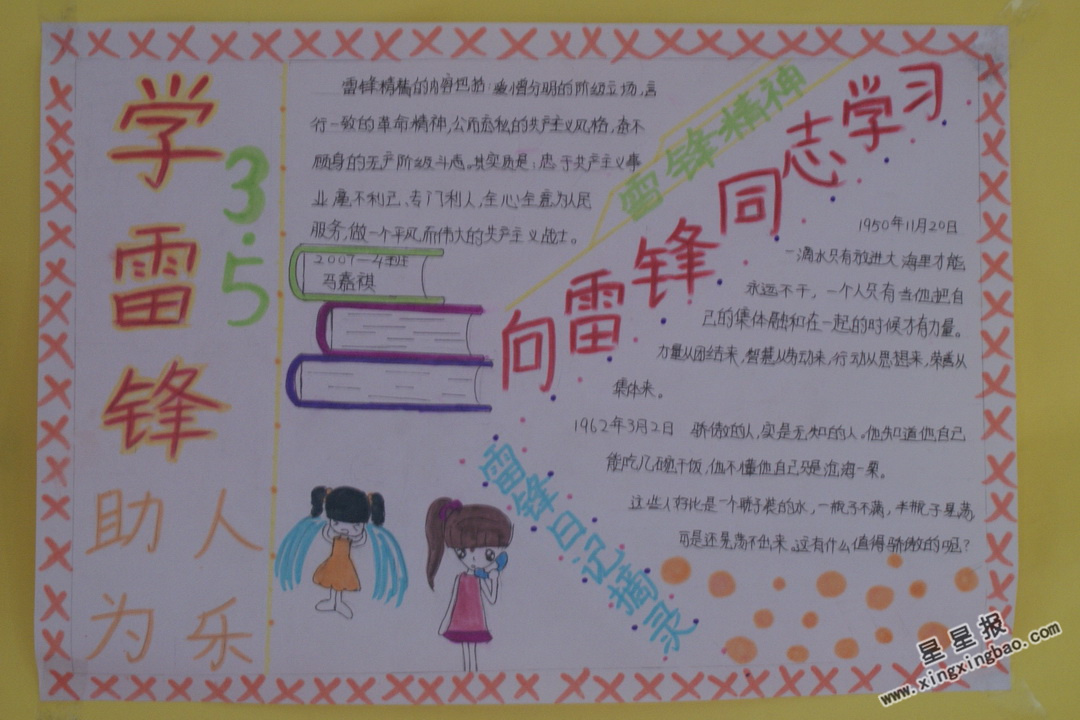 学雷锋
3.5
助人
为乐
雷锋精神的内容包括:爱憎分明的阶级立场,言
行一致的革命精神,公而忘私的共产主义风格,奋不
顾身的无产阶级斗志。其实质是:忠于共产主义事
业,毫不利己、专门利人,全心全意为人民
服务,做一个平凡而伟大的共产主义战士。
2007—4班
马嘉祺
雷锋精神
向雷锋同志学习
1950年11月20日
一滴水只有放进大海里才能
永远不干,一个人只有当他把自
己的集体融和在一起的时候才有力量。
力量从团结来,智慧从劳动来,行动从思想来,荣誉从
集体来。
1962年3月2日 骄傲的人,实是无知的人。他知道他自己
能吃几碗干饭,他不懂他自己只是沧海一粟。
这些人好比是一个瓶子装的水,一瓶子不满,半瓶子晃荡
可是还晃荡不出来。这有什么值得骄傲的呢?
雷锋日记摘录
星星报
www.xingxingbao.com